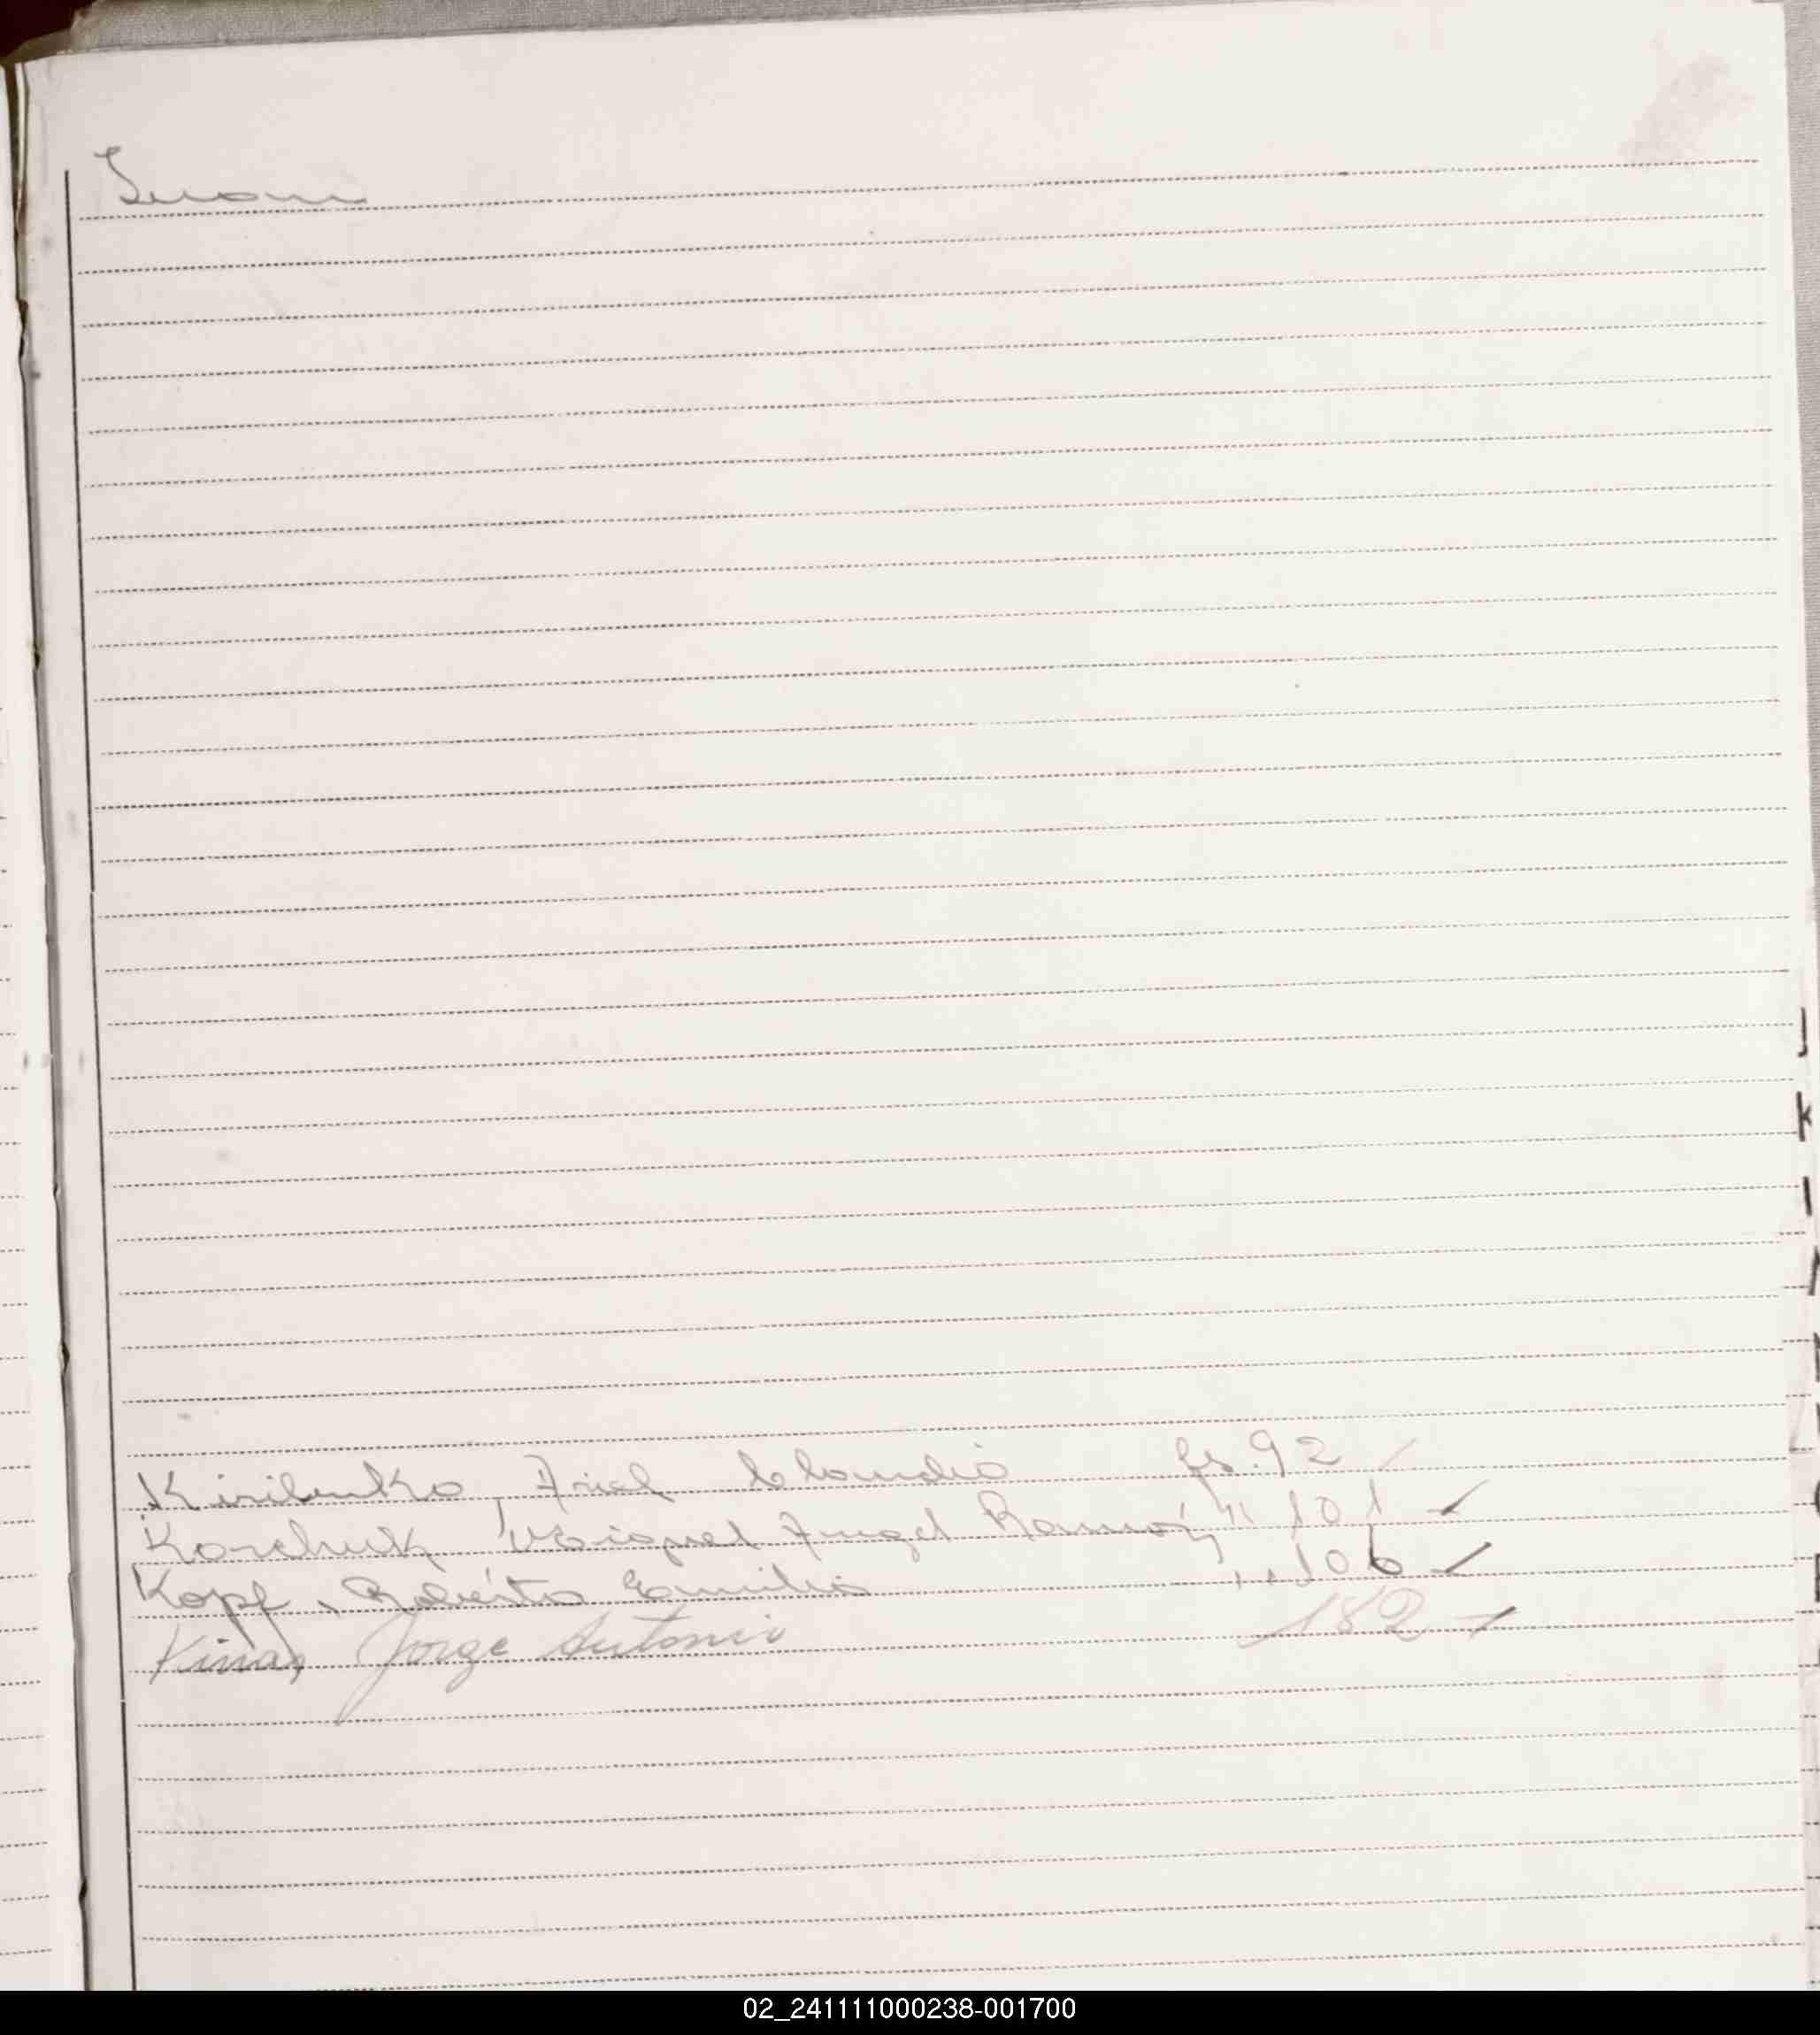 J
K
Kirilenko, Ariel Claudio fs. 92
Korchuk, Miguel Angel Ramón " 101
Kopf, Roberto Emilio " 106
Kinas, Jorge Antonio 182
02_241111000238-001700